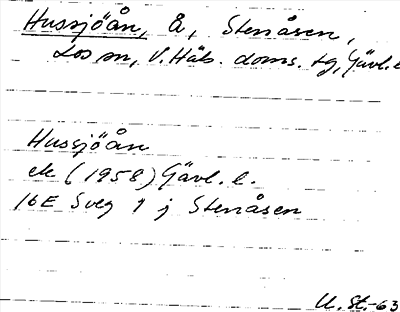 Hussjöån, å, Stenåsen,
Los sn, V. Häls. doms. tg, Gävl. l
Hussjöån
ek (1958) Gävl. l.
16E Sveg 1 j Stenåsen
U. St. -63